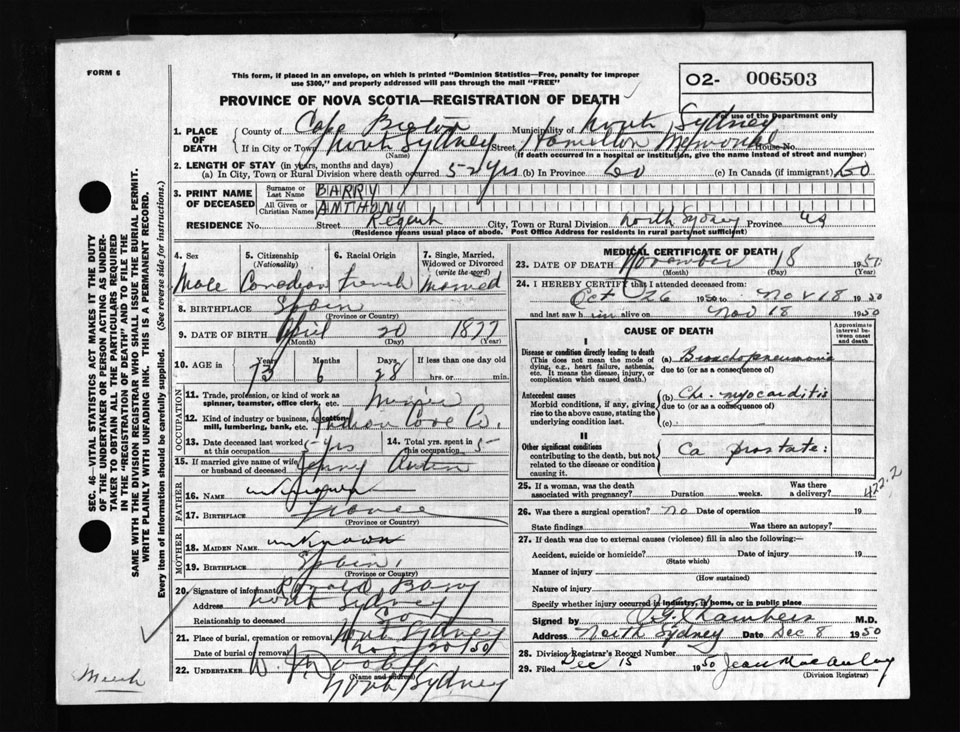 FORM 6
This form, if placed in an envelope, on which is printed "Dominion Statistics—Free, penalty for improper
use $300," and properly addressed will pass through the mail "FREE"
02- 006503
PROVINCE OF NOVA SCOTIA—REGISTRATION OF DEATH
For use of the Department only
1. PLACE OF DEATH { County of Cape Breton Municipality of North Sydney
If in City or Town North Sydney Street Hamilton Memorial House No.
(Name) (If death occurred in a hospital or institution, give the name instead of street and number)
2. LENGTH OF STAY (in years, months and days)
(a) In City, Town or Rural Division where death occurred 52 yrs (b) In Province Do (c) In Canada (if immigrant) Do
3. PRINT NAME OF DECEASED { Surname or Last Name BARRY
All Given or Christian Names ANTHONY
RESIDENCE No. Street Regent City, Town or Rural Division North Sydney Province NS
(Residence means usual place of abode. Post Office Address for residents in rural parts not sufficient)
4. Sex 5. Citizenship (Nationality) 6. Racial Origin 7. Single, Married, Widowed or Divorced (write the word)
Male Canadian French Married
8. BIRTHPLACE Spain
(Province or Country)
9. DATE OF BIRTH April 20 1877
(Month) (Day) (Year)
10. AGE in Years Months Days If less than one day old
73 6 28 hrs. or min.
OCCUPATION
11. Trade, profession, or kind of work as
spinner, teamster, office clerk, etc. Miner
12. Kind of industry or business, as cotton-
mill, lumbering, bank, etc. Indian Cove Co.
13. Date deceased last worked at this occupation 5 yrs 14. Total yrs. spent in this occupation 5
15. If married give name of wife or husband of deceased Jenny
FATHER
16. NAME unknown
17. BIRTHPLACE France
(Province or Country)
MOTHER
18. MAIDEN NAME unknown
19. BIRTHPLACE Spain
(Province or Country)
20. Signature of informant Ronald Barry
Address North Sydney
Relationship to deceased Son
21. Place of burial, cremation or removal North Sydney
Date of burial or removal Nov 20/50
22. UNDERTAKER
(Name and address)
North Sydney
MEDICAL CERTIFICATE OF DEATH
23. DATE OF DEATH November 18 1950
(Month) (Day) (Year)
24. I HEREBY CERTIFY that I attended deceased from:
Oct 26 1950 to Nov 18 1950
and last saw him alive on Nov 18 1950
CAUSE OF DEATH
Approximate interval between onset and death
I
Disease or condition directly leading to death (a) Bronchopneumonia
(This does not mean the mode of dying, e.g., heart failure, asthenia, etc. It means the disease, injury, or complication which caused death.)
due to (or as a consequence of)
Antecedent causes (b) Chr. myocarditis
Morbid conditions, if any, giving rise to the above cause, stating the underlying condition last.
due to (or as a consequence of)
(c)
II
Other significant conditions Ca prostate.
contributing to the death, but not related to the disease or condition causing it.
422.2
25. If a woman, was the death associated with pregnancy? Duration weeks. Was there a delivery?
26. Was there a surgical operation? no Date of operation 19
State findings Was there an autopsy?
27. If death was due to external causes (violence) fill in also the following:—
Accident, suicide or homicide? Date of injury 19
(State which)
Manner of injury
(How sustained)
Nature of injury
Specify whether injury occurred in industry, in home, or in public place
Signed by Chambers M.D.
Address North Sydney Date Dec 8 1950
28. Division Registrar's Record Number
29. Filed Dec 15 1950 Jean MacAulay
(Division Registrar)
SEC. 46—VITAL STATISTICS ACT MAKES IT THE DUTY
OF THE UNDERTAKER OR PERSON ACTING AS UNDER-
TAKER TO OBTAIN ALL THE PARTICULARS REQUIRED
IN THE "REGISTRATION OF DEATH" AND TO FILE THE
SAME WITH THE DIVISION REGISTRAR WHO SHALL ISSUE THE BURIAL PERMIT.
WRITE PLAINLY WITH UNFADING INK. THIS IS A PERMANENT RECORD.
Every item of information should be carefully supplied. (See reverse side for instructions.)